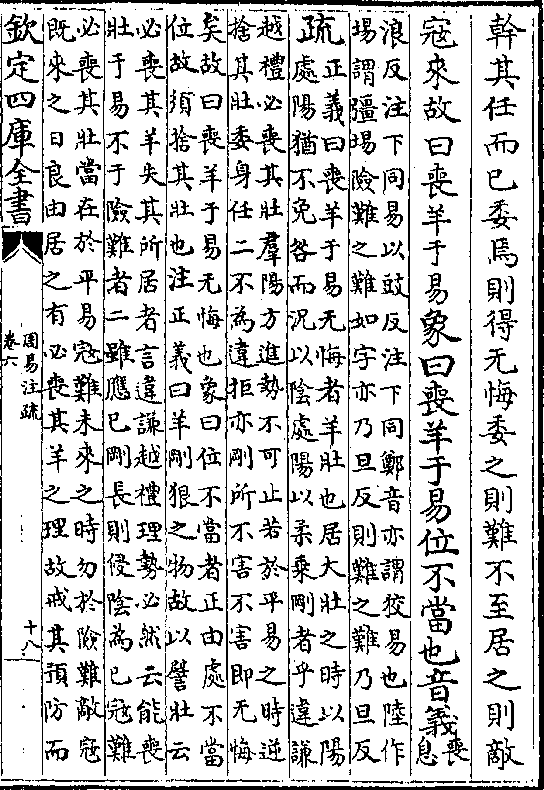 幹其任而已委焉則得无悔委之則難不至居之則敵
寇來故曰喪羊于易象曰喪羊于易位不當也音義
喪
息
浪反注下同易以䜴反注下同鄭音亦謂狡易也陸作
場謂疆場險難之難如字亦乃旦反則難之難乃旦反
疏
正義曰喪羊于易无悔者羊壯也居大壯之時以陽
處陽猶不免咎而況以陰處陽以柔乘剛者乎違謙
越禮必喪其壯羣陽方進勢不可止若於平易之時逆
捨其壯委身任二不為違拒亦剛所不害不害即无悔
矣故曰喪羊于易无悔也象曰位不當者正由處不當
位故須捨其壯也注正義曰羊剛狠之物故以譬壯云
必喪其羊失其所居者言違謙越禮理勢必然云能喪
壯于易不于險難者二雖應已剛長則侵陰為已寇難
必喪其壯當在於平易寇難未來之時勿於險難敵寇
既來之日良由居之有必喪其羊之理故戒其預防而
欽定四庫全書
周易注疏
卷六
十八